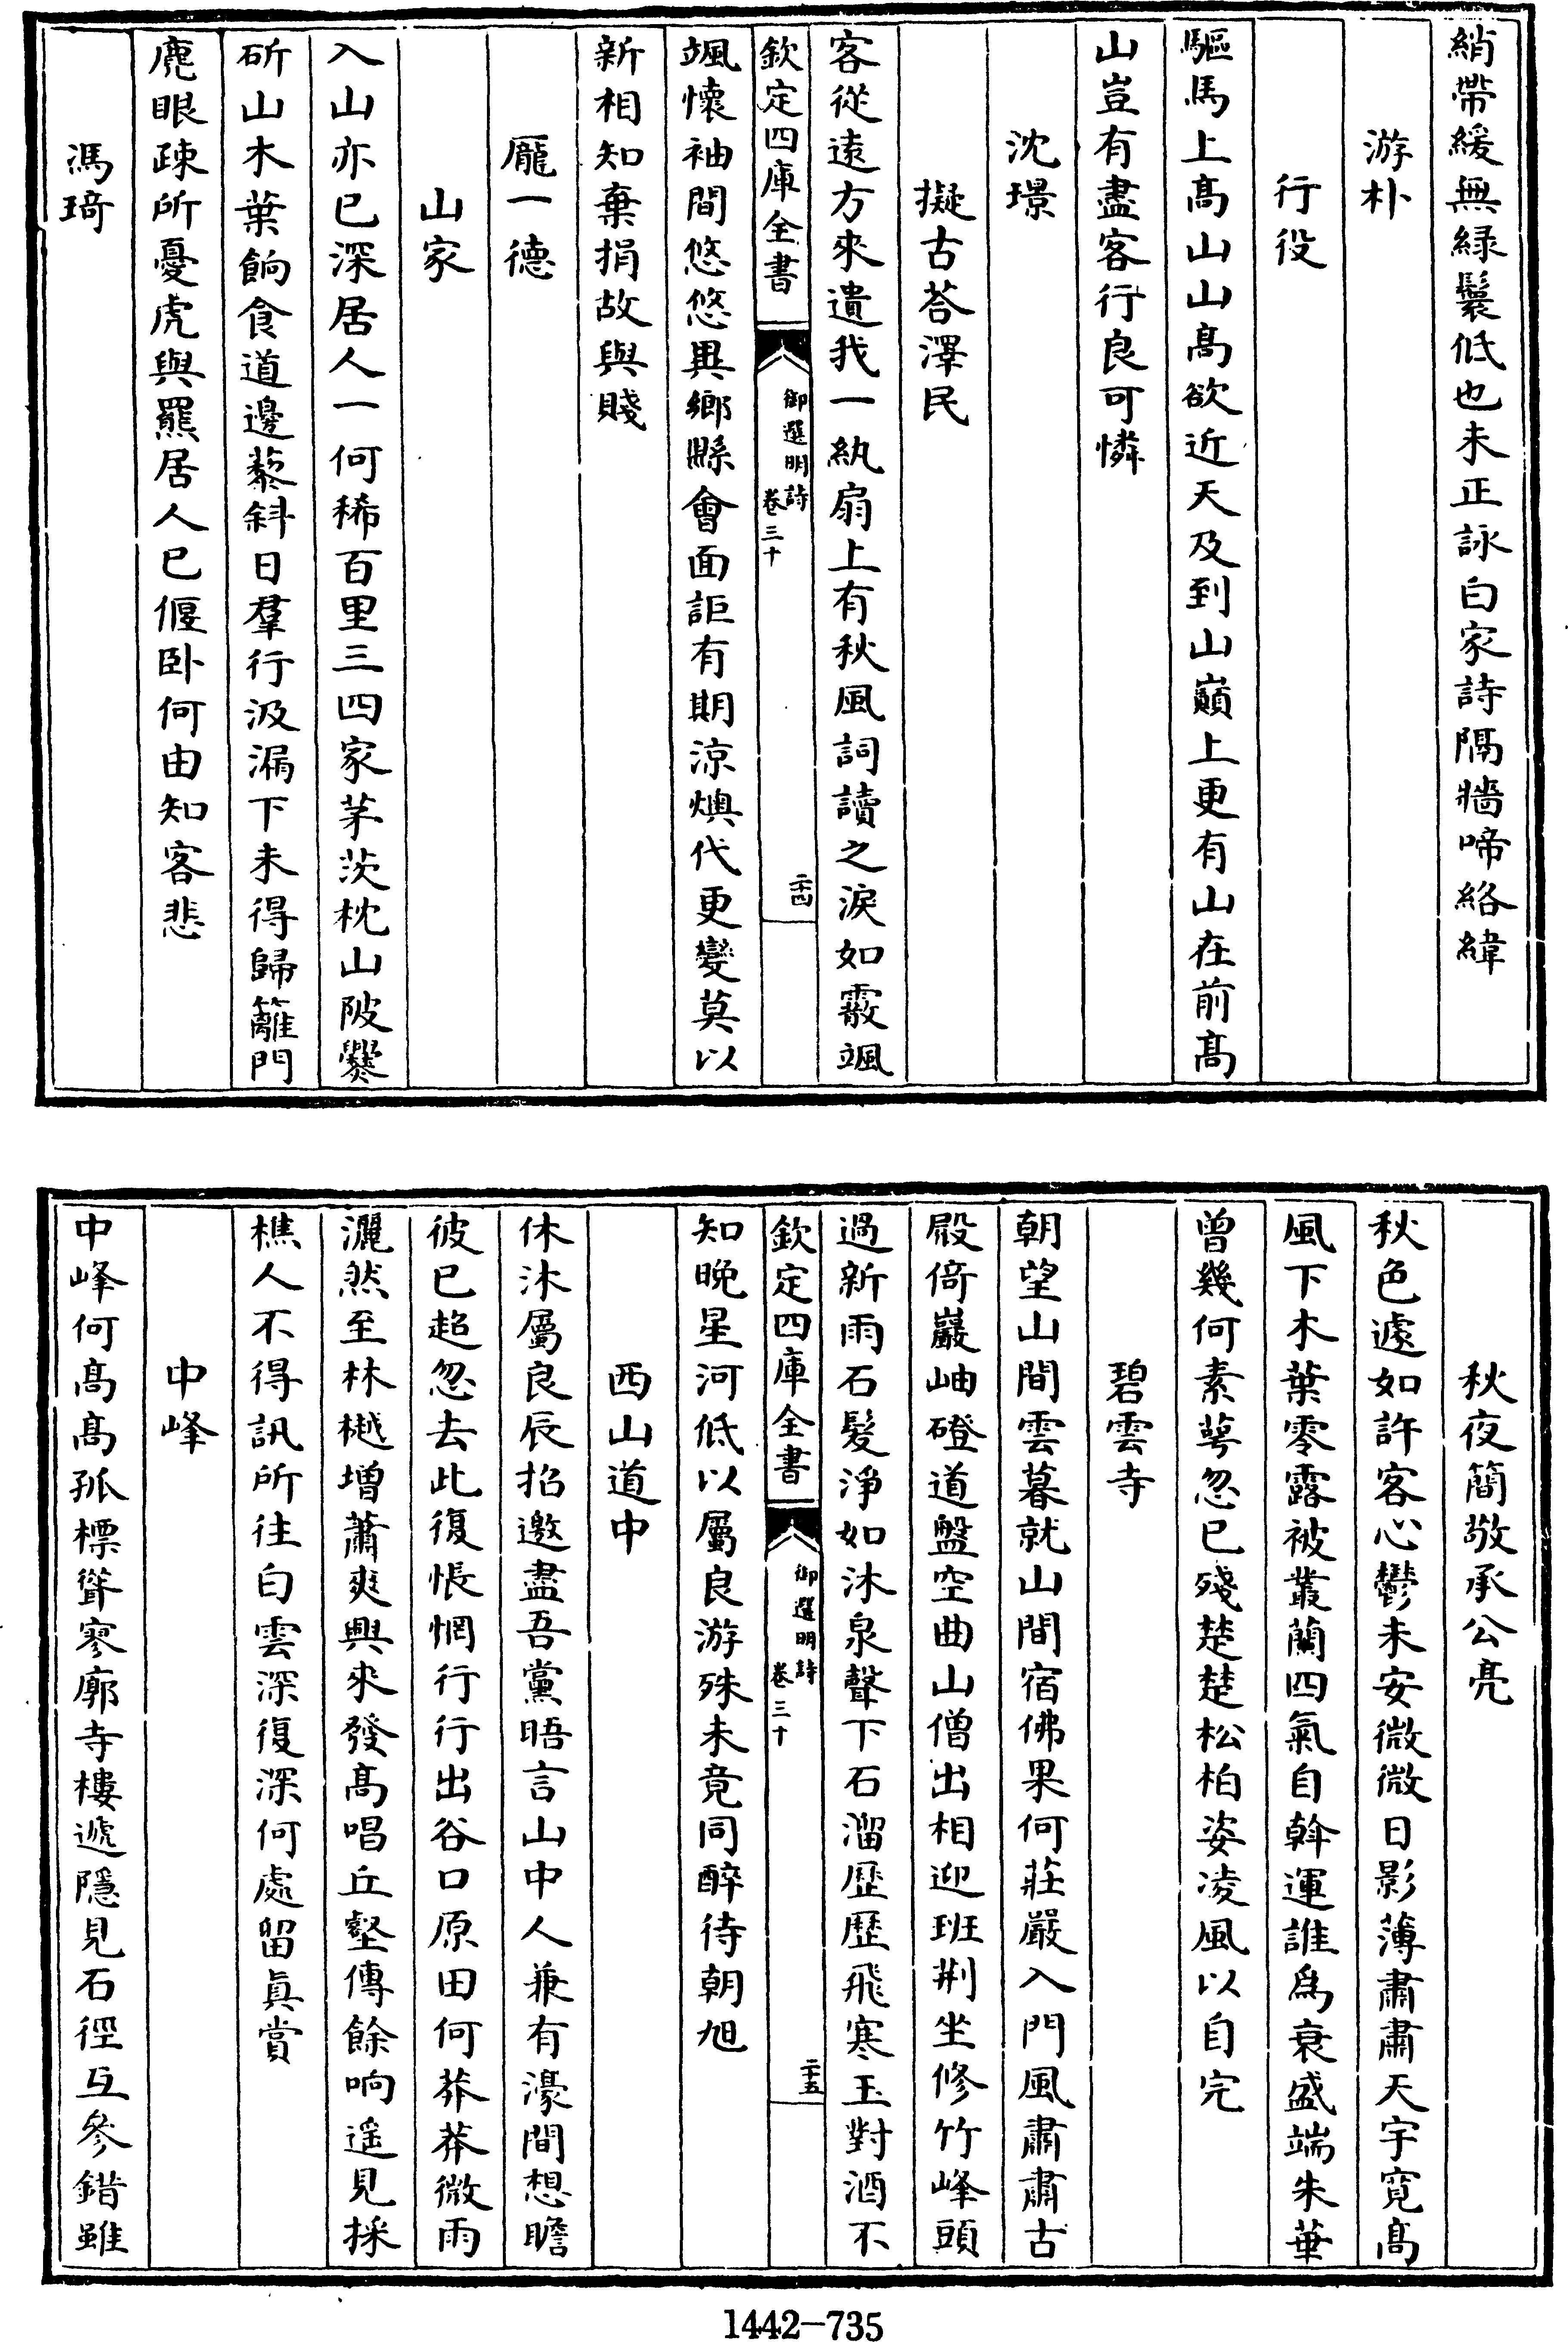 綃帶緩無緑鬟低也未正詠白家詩隔牆啼絡緯
游朴
行役
驅馬上髙山山髙欲近天及到山巔上更有山在前髙
山豈有盡客行良可憐
沈璟
擬古荅澤民
客從逺方來遺我一紈扇上有秋風詞讀之淚如霰颯
欽定四庫全書
御選明詩
卷三十
二十四
颯懷袖間悠悠異鄉縣會面詎有期凉燠代更變莫以
新相知棄捐故與賤
龎一德
山家
入山亦已深居人一何稀百里三四家茅茨枕山陂爨
斫山木葉餉食道邊藜斜日羣行汲漏下未得歸籬門
麂眼疎所憂虎與羆居人已偃卧何由知客悲
馮琦
秋夜簡敬承公亮
秋色遽如許客心鬱未安微微日影薄肅肅天宇寛髙
風下木葉零露被叢蘭四氣自斡運誰爲衰盛端朱華
曾幾何素萼忽已殘楚楚松柏姿凌風以自完
碧雲寺
朝望山間雲暮就山間宿佛果何莊嚴入門風肅肅古
殿倚巖岫磴道盤空曲山僧出相迎班荆坐修竹峰頭
過新雨石髮淨如沐泉聲下石溜歴歴飛寒玉對酒不
欽定四庫全書
御選明詩
卷三十
二十五
知晩星河低以屬良游殊未竟同醉待朝旭
西山道中
休沐屬良辰招邀盡吾黨晤言山中人兼有濠間想瞻
彼已超忽去此復悵惘行行出谷口原田何莽莽微雨
灑然至林樾增蕭爽興來發髙唱丘壑傳餘响遥見採
樵人不得訊所往白雲深復深何處留眞賞
中峰
中峰何髙髙孤標聳寥廓寺樓遞隱見石徑互參錯雖
1442-735